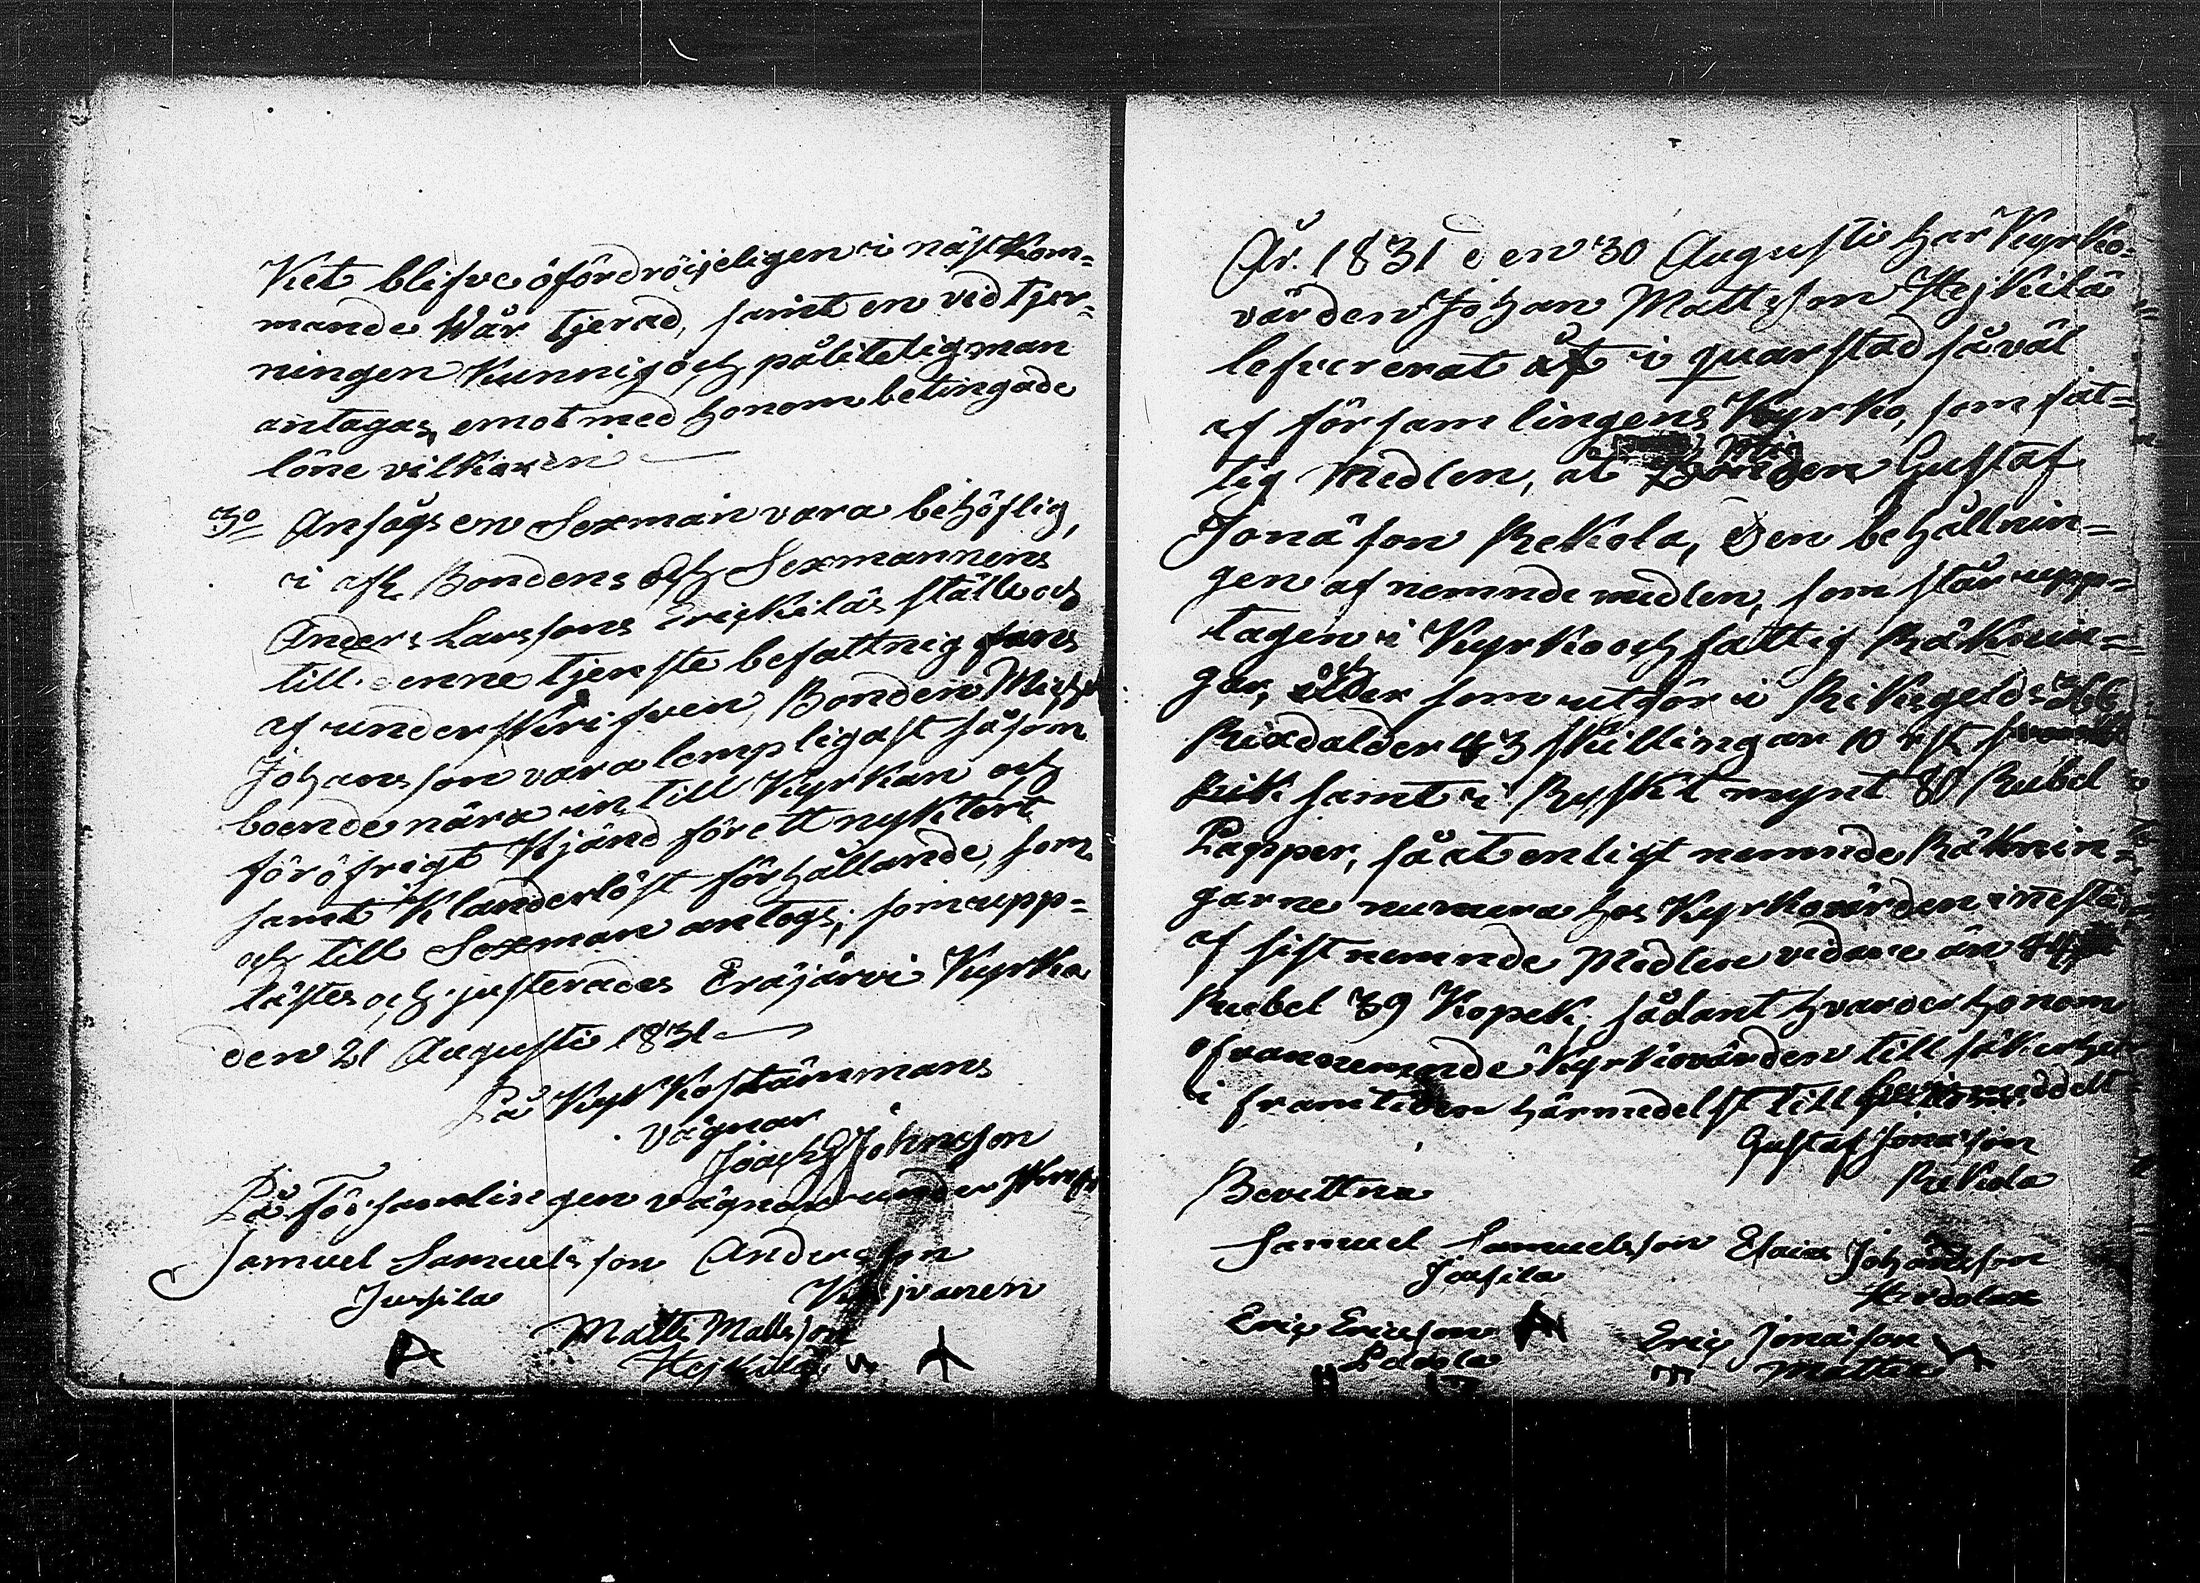 Ket blifve ofördröijeligen i nästkom=
mande Vår tjerad, samt en vid tjer=
ningen kunnig och pålitelig man
antagas, emot med honom betingade
löne vilkoren
3o Ansågs en Sexman vara behöflig,
i afl. Bondens och Sexmannens
Anders Larssons Erickiläs ställe och
till denne tjenste befattnig fans
af underskrifven, Bonden Michel
Johansson vara lempligast såsom
boende nära intill Kyrkan och
föröfrigt kjänd för ett nyktert
samt klanderlöst förhållande, som
och till Sexman antogs; som upp=
lästes och justerades Eräjärvi Kyrka
den 21 Augusti 1831
På Kyrkostämmans
vägnar
Joseph Johnsson
På Församlingen vägnar underskrifva
Samuel Samuelsson Andersson
Jussila
Matts Mattsson
Hejkilä
År. 1831 den 30 Augusti har Kyrko=
värden Johan Mattsson Hejkilä
lefvererat åt i quarstad så väl
af församlingens Kyrko, som fat=
tig Medlen, åt mig Bonden Gustaf
Jonasson Rekola, den behållnin=
gen af nemnde medlen, som står upp=
tagen i Kyrko och fattig Räknin=
gar, som utgör i Riksgelds 366
Rixdalder 43 skillingar 10 rst
samt i Ryskt mynt 80 Rubel
Papper, så at enligt nemnde Räknin=
garne numera hos Kyrkovärden inestå
af sist nemnde Medlen vidare än
Rubel 39 Kopek, sådant hvarder honom
ofvannemnde Kyrkovärden till säkerhet
i framtiden härmedelst till bevis meddelt
Gustaf Jonasson
Rekola
Bevittna
Samuel Samuelsson Esaias Johansson
Jussila
Eric Ericsson A Eric Jonasson
Mattas